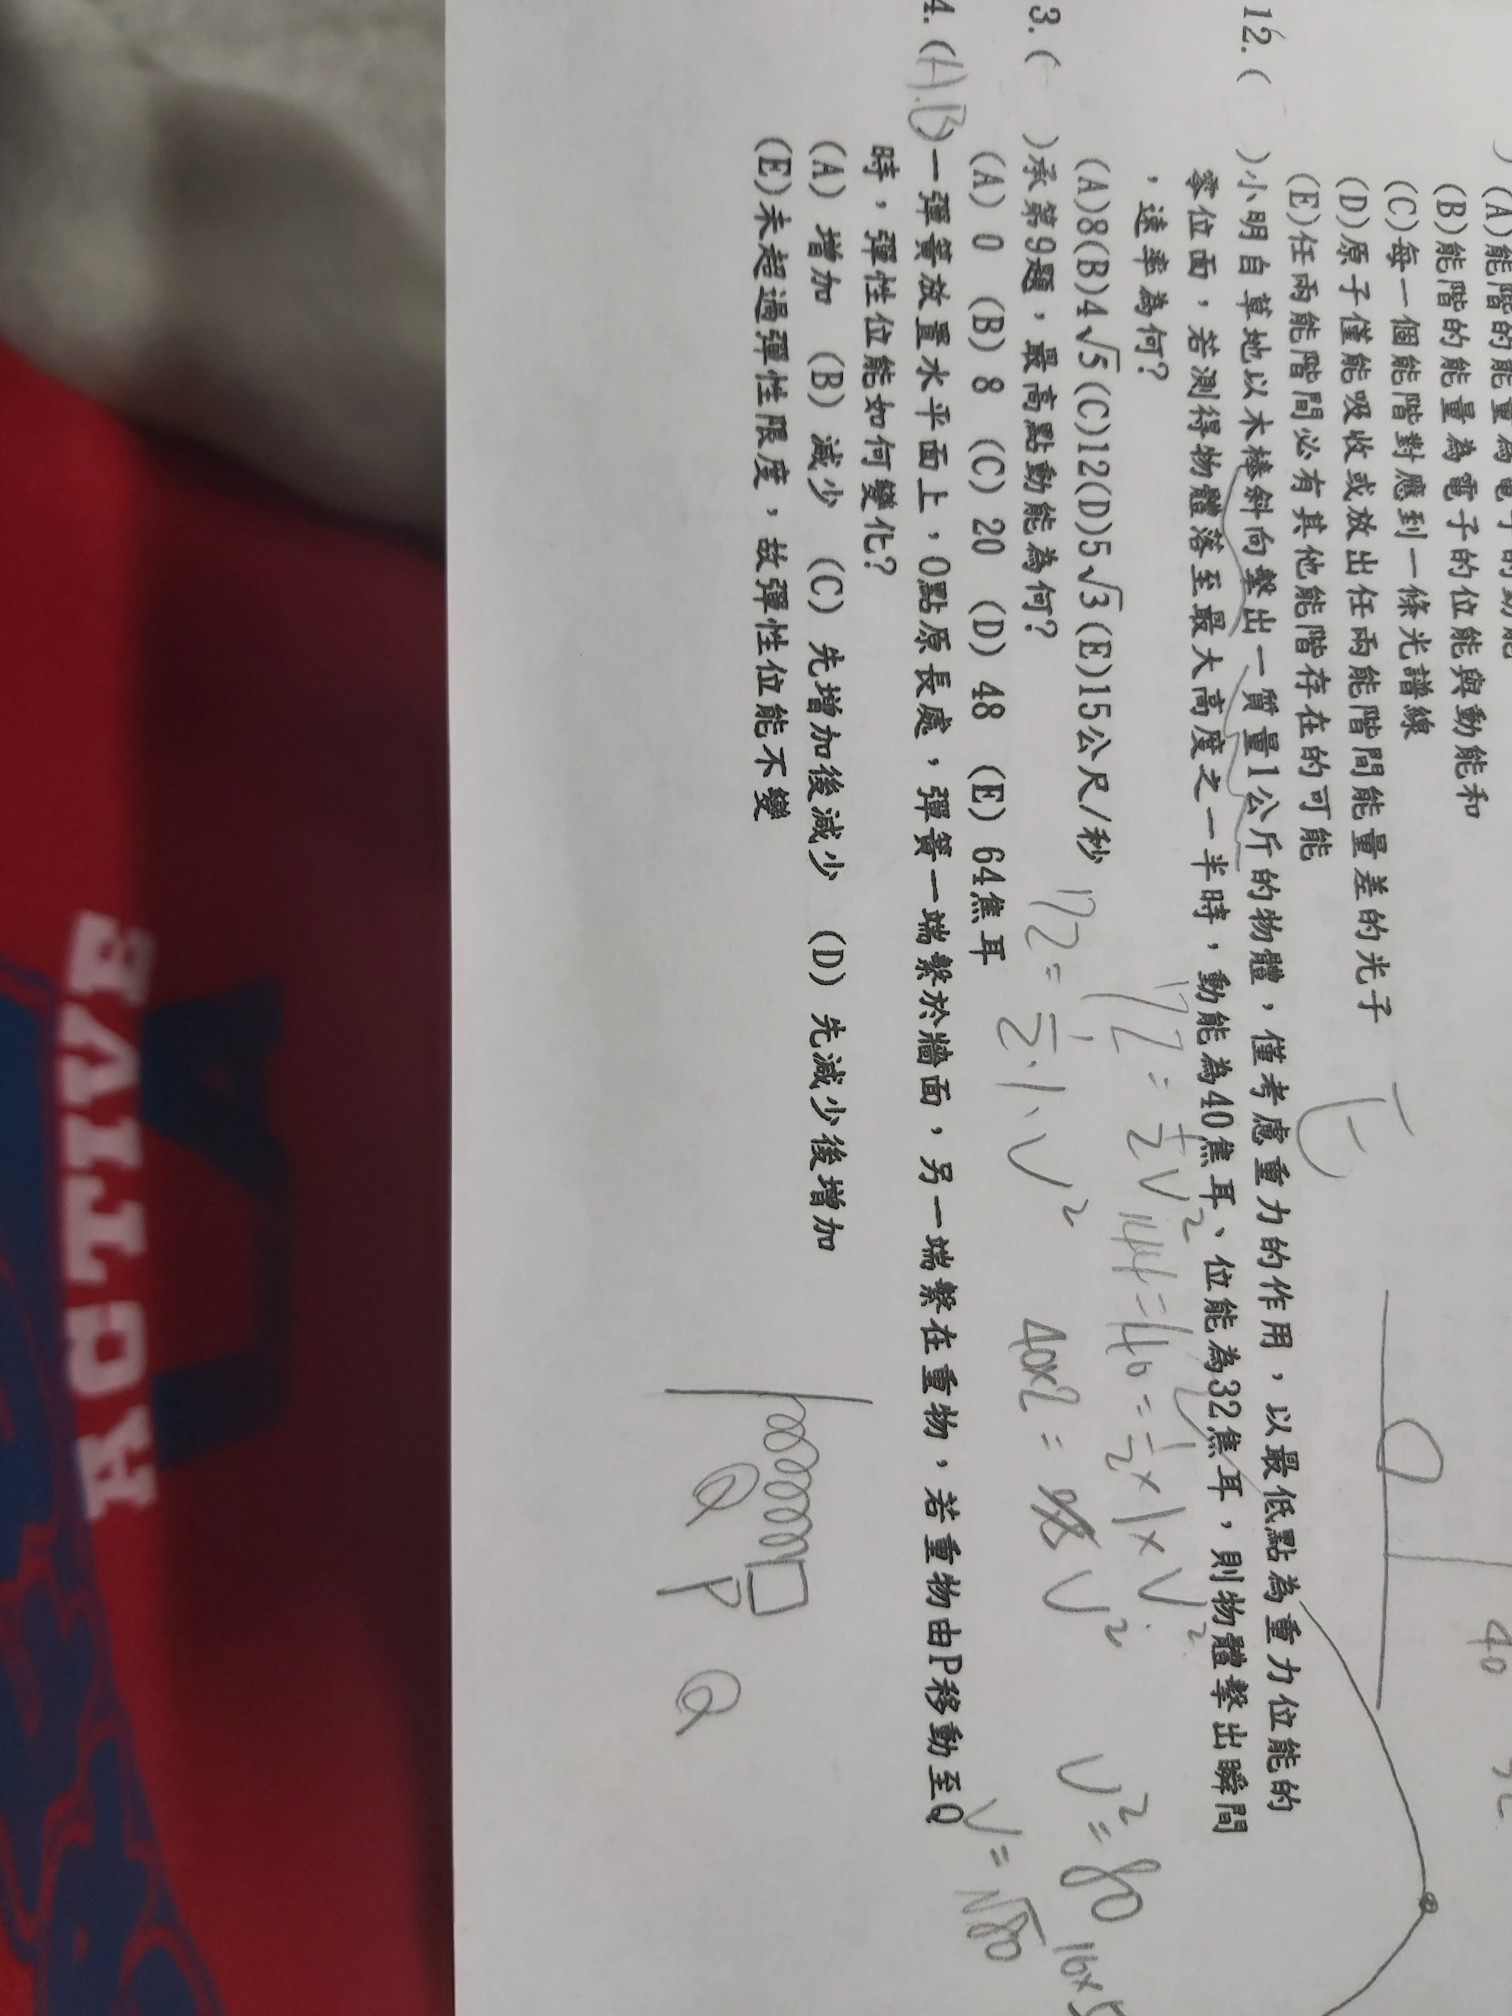 (A)能階的能量為電子的動能
(B)能階的能量為電子的位能與動能和
(C)每一個能階對應到一條光譜線
(D)原子僅能吸收或放出任兩能階間能量差的光子
(E)任兩能階間必有其他能階存在的可能
E
40
12.( )小明自草地以木棒斜向擊出一質量1公斤的物體，僅考慮重力的作用，以最低點為重力位能的
零位面，若測得物體落至最大高度之一半時，動能為40焦耳、位能為32焦耳，則物體擊出瞬間
，速率為何?
(A)8(B)4√5(C)12(D)5√3(E)15公尺/秒
72=½V²
144=
40=½×1×V²
72=½·1·V²
40×2=V²
V²=80
V=√80
16×5
3.( )承第9題，最高點動能為何?
(A) 0 (B) 8 (C) 20 (D) 48 (E) 64焦耳
4.(A.B)一彈簧放置水平面上，O點原長處，彈簧一端繫於牆面，另一端繫在重物，若重物由P移動至Q
時，彈性位能如何變化?
(A) 增加 (B) 減少 (C) 先增加後減少 (D) 先減少後增加
(E)未超過彈性限度，故彈性位能不變
Q P Q